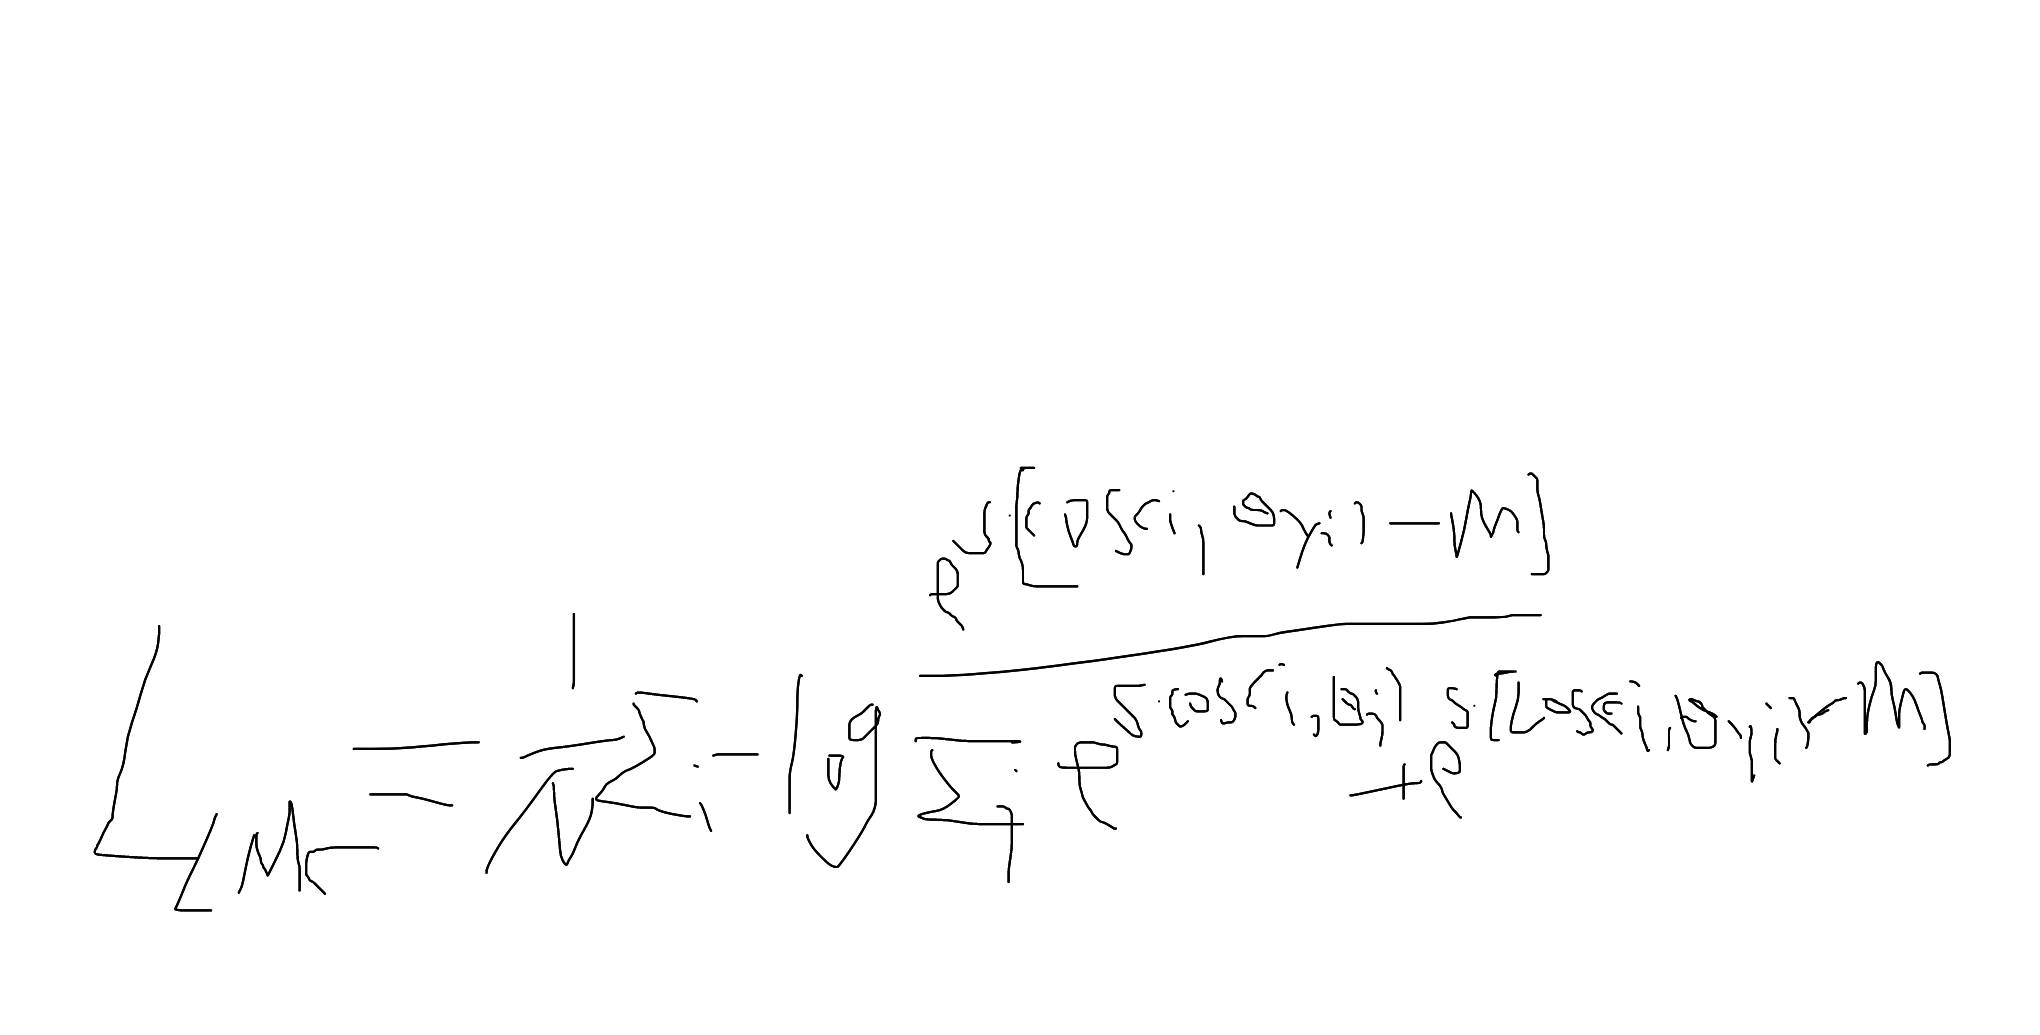 L_{LMC} = \frac{1}{N} \sum_i -\log \frac{e^{s \cdot [\cos(i, \theta_{y_i}) - m]}}{\sum_j e^{s \cdot \cos(i, \theta_j)} + e^{s \cdot [\cos(i, \theta_{y_i}) - m]}}